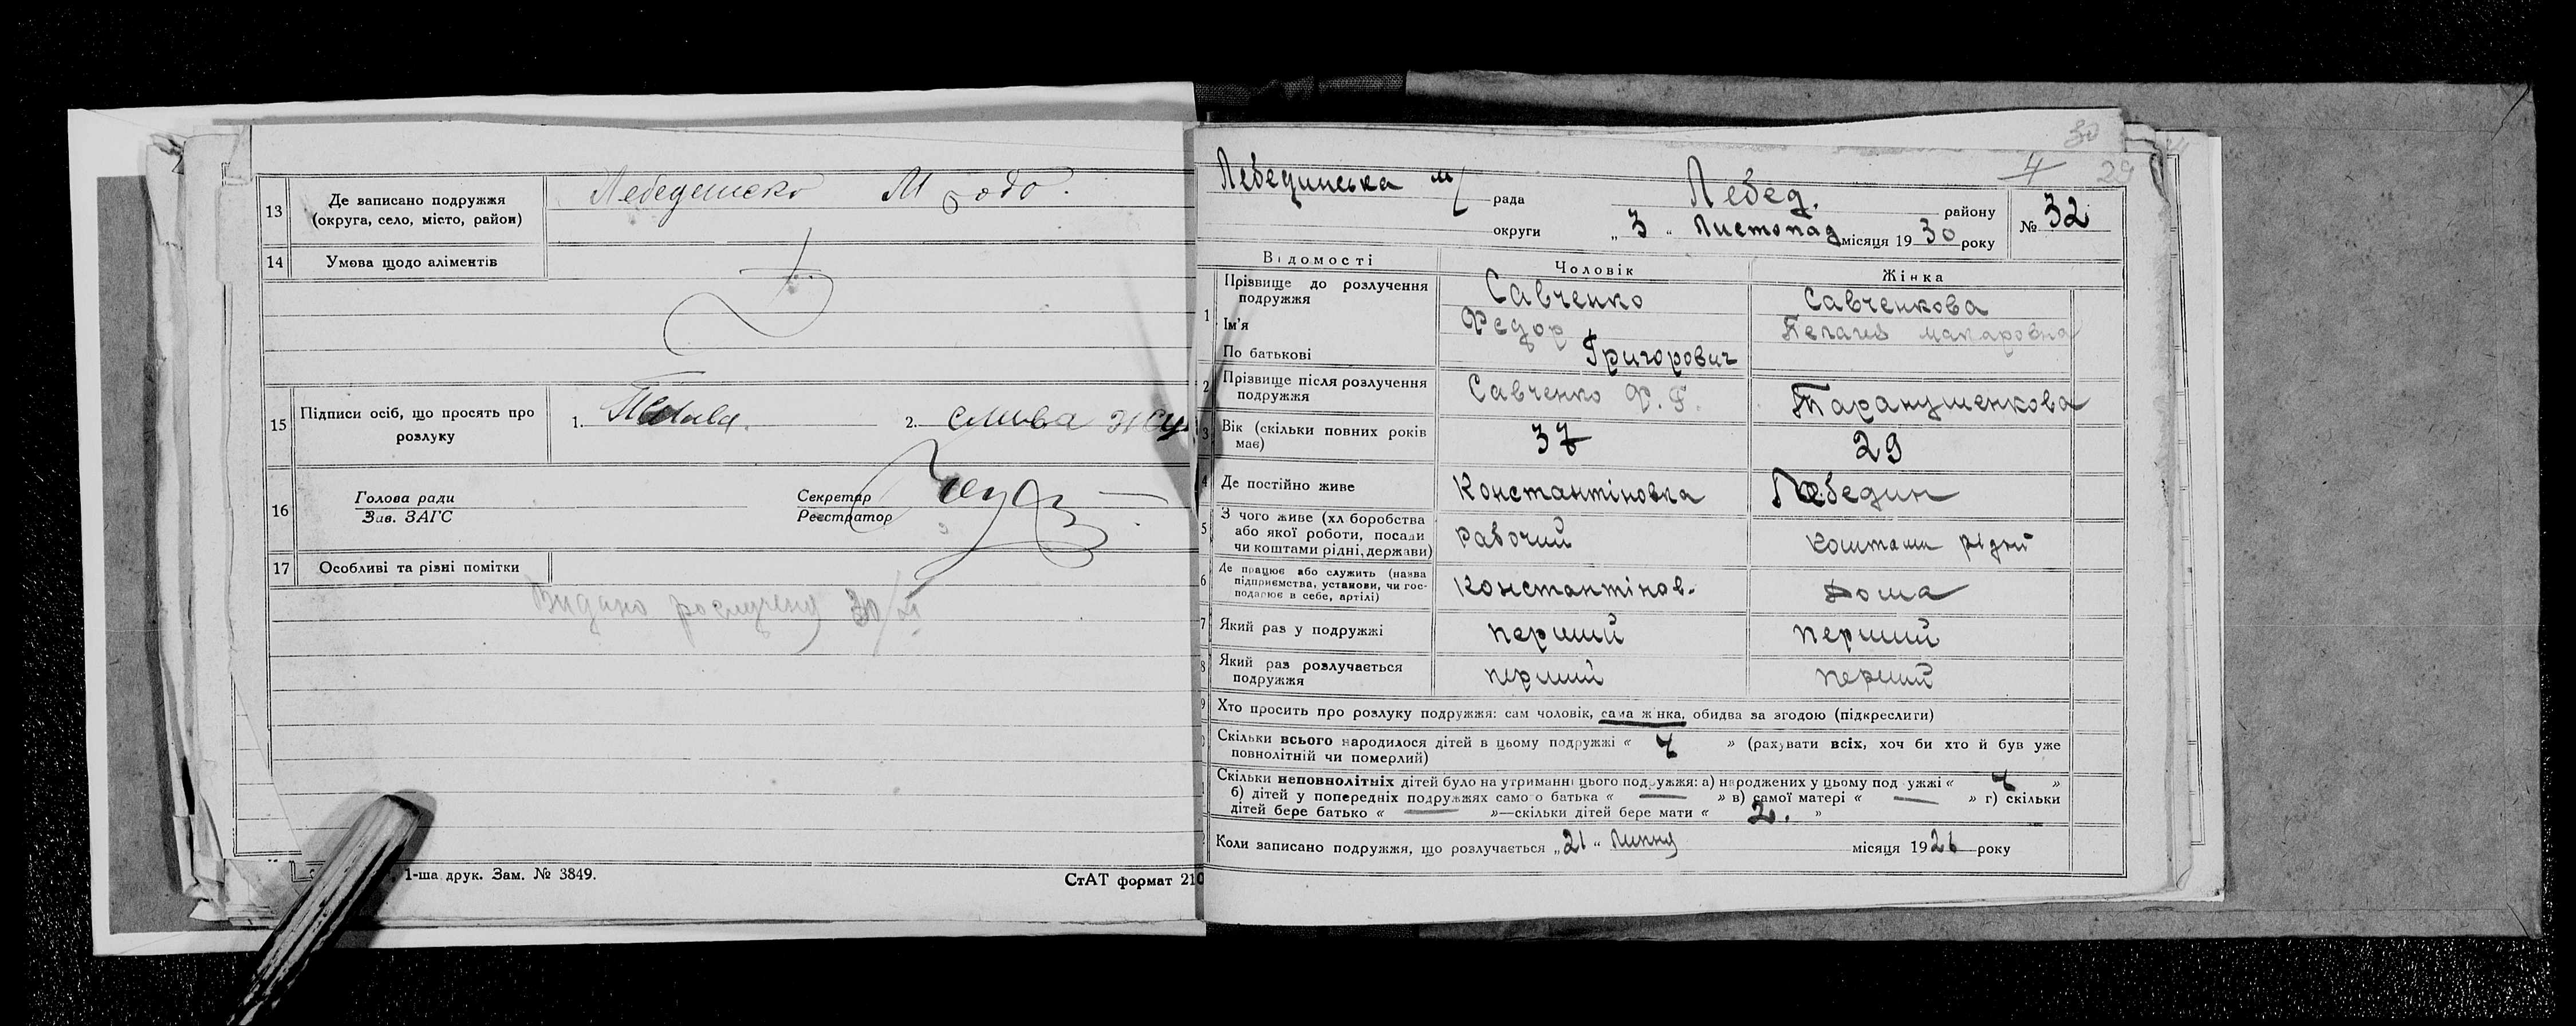 13 Де записано подружжя (округа, село, місто, район)
14 Умова щодо аліментів
15 Підписи осіб, що просять про розлуку 1. 2. слива
16 Голова ради Зав. ЗАГС Секретар Реєстратор
17 Особливі та різні помітки
Видано 30/XI
1-ша друк. Зам. № 3849.
СтАТ формат 210
30
4 29
Лебединська м/ рада Лебед. району № 32
округи „3“ Листопад місяця 1930 року
Відомості Чоловік Жінка
1 Прізвище до розлучення подружжя Савченко Савченкова
Ім'я Федор Пелагея макаровна
По батькові Григорович
2 Прізвище після розлучення подружжя Савченко Ф. Г. Таранушенкова
3 Вік (скільки повних років має) 37 29
4 Де постійно живе Константіновка Лебедин
5 З чого живе (хл боробства або якої роботи, посади чи коштами рідні, держави) рабочий коштами рідні
6 Де працює або служить (назва підприємства, установи, чи господарює в себе, артілі) Константінов. Дома
7 Який раз у подружжі перший перший
8 Який раз розлучається подружжя перший перший
9 Хто просить про розлуку подружжя: сам чоловік, сама жінка, обидва за згодою (підкреслити)
Скільки всього народилося дітей в цьому подружжі « 4 » (рахувати всіх, хоч би хто й був уже
повнолітній чи померлий)
Скільки неповнолітніх дітей було на утриманні цього подружжя: а) народжених у цьому подружжі « 4 »
б) дітей у попередніх подружжях самого батька « — » в) самої матері « — » г) скільки
дітей бере батько « — »—скільки дітей бере мати « 2. »
Коли записано подружжя, що розлучається „21“ Липня місяця 1926 року